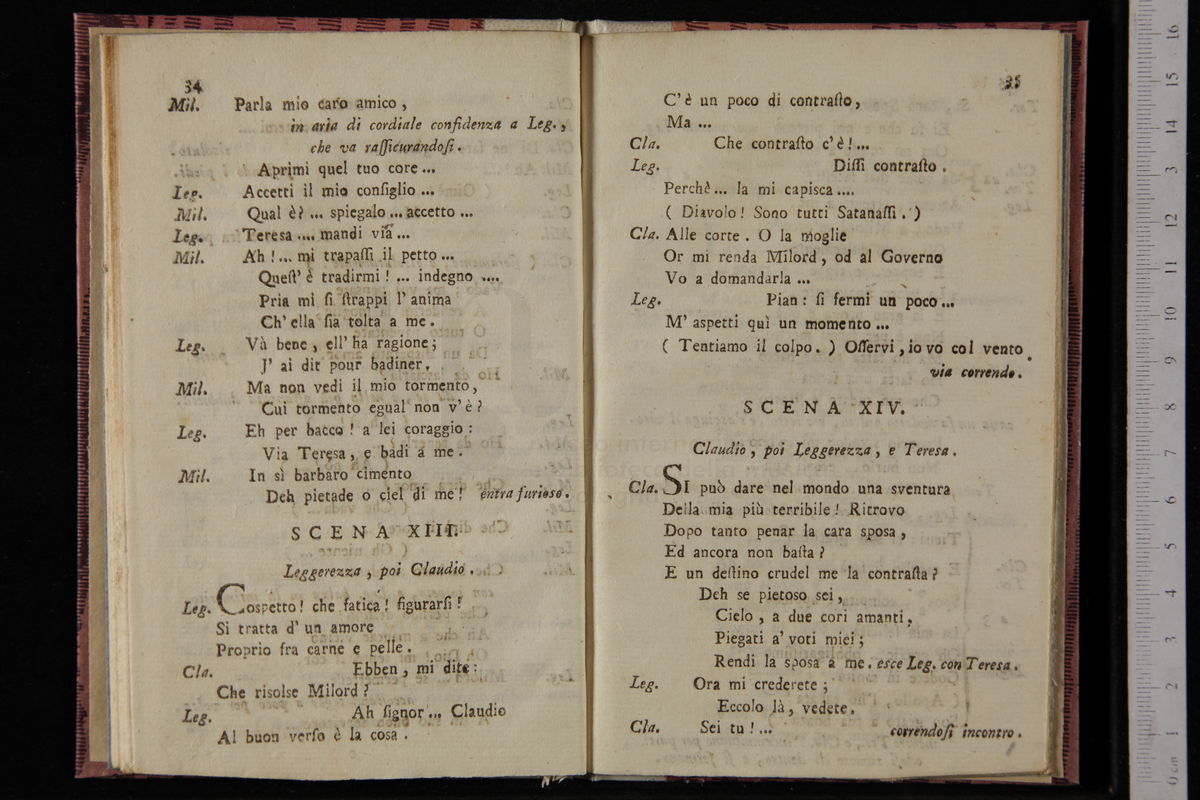 34
Mil. Parla mio caro amico,
in aria di cordiale confidenza a Leg.,
che va raſſicurandoſi.
Aprimi quel tuo core ...
Leg. Accetti il mio conſiglio ...
Mil. Qual è? ... spiegalo ... accetto ...
Leg. Teresa .... mandi via ...
Mil. Ah! ... mi trapaſſi il petto ...
Queſt' è tradirmi! ... indegno ....
Pria mi ſi ſtrappi l' anima
Ch' ella ſia tolta a me.
Leg. Và bene, ell' ha ragione;
J' ai dit pour badiner.
Mil. Ma non vedi il mio tormento,
Cui tormento egual non v' è?
Leg. Eh per bacco! a lei coraggio:
Via Teresa, e badi a me.
Mil. In sì barbaro cimento
Deh pietade o ciel di me! entra furioso.
SCENA XIII.
Leggerezza, poi Claudio.
Leg. Cospetto! che fatica! figurarſi!
Si tratta d' un amore
Proprio fra carne e pelle.
Cla. Ebben, mi dite:
Che risolse Milord?
Leg. Ah ſignor ... Claudio
Al buon verſo è la cosa.
35
C' è un poco di contraſto,
Ma ...
Cla. Che contraſto c' è! ...
Leg. Diſſi contraſto.
Perchè ... la mi capisca ....
( Diavolo! Sono tutti Satanaſſi. )
Cla. Alle corte. O la moglie
Or mi renda Milord, od al Governo
Vo a domandarla ...
Leg. Pian: ſi fermi un poco ...
M' aspetti quì un momento ...
( Tentiamo il colpo. ) Oſſervi, io vo col vento.
via correndo.
SCENA XIV.
Claudio, poi Leggerezza, e Teresa.
Cla. SI può dare nel mondo una sventura
Della mia più terribile! Ritrovo
Dopo tanto penar la cara sposa,
Ed ancora non baſta?
E un deſtino crudel me la contraſta?
Deh se pietoso sei,
Cielo, a due cori amanti,
Piegati a' voti miei;
Rendi la sposa a me. esce Leg. con Teresa.
Leg. Ora mi crederete;
Eccolo là, vedete.
Cla. Sei tu! ... correndoſi incontro.